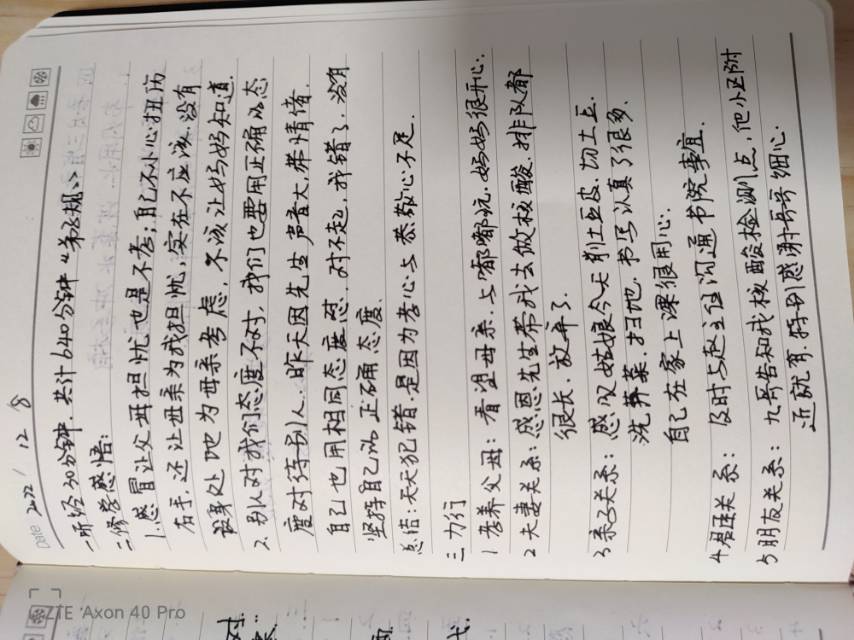 Date 2022 / 12 8
一听经30分钟，共计640分钟"弟子规"
二修学感悟：
1.感冒让父母担忧也是不孝；自己不小心扭伤
右手，还让母亲为我担忧，实在不应该，没有
设身处地为母亲考虑，不该让妈妈知道．
2、别人对我们态度不对，我们也要用正确的态
度对待别人．昨天因先生声音大，带情绪，
自己也用相同态度怼．对不起，我错了．没有
坚持自己的正确态度．
总结：天天犯错，是因为孝心与恭敬心不足．
三力行
1 孝养父母：看望母亲，与嘟嘟玩，妈妈很开心．
2 夫妻关系：感恩先生带我去做核酸，排队都
很长．放弃了．
3 亲子关系：感叹姑娘今天削土豆皮，切土豆．
洗菜．扫地，书写认真了很多．
自己在家上课很用心．
4 君臣关系：及时与赵主任沟通书院事宜．
5 朋友关系：九号告知我核酸检测点，他小区附
近就有．特别感谢九号细心．
ZTE Axon 40 Pro
对：